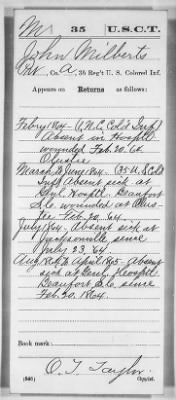 M | 35 | U.S.C.T.
John Milberts
Pvt, Co. A, 35 Reg't U. S. Colored Inf.
Appears on Returns as follows:
Febry 1864 (1 N.C. Cold Inf)
Absent in Hospl
wounded Feb. 20, 64
Olustee
March to June 1864. (35 U.S. Cold
Inf) Absent sick at
Genl. Hospl. Beaufort
S.C. wounded at Olus-
tee Feb. 20, 64.
July 1864. Absent sick at
Jacksonville since
July 23, 64
Aug 1864 to April 1865 - Absent
sick at Genl. Hospl.
Beaufort S.C. since
Feb. 20, 1864.
Book mark:
O. T. Taylor
(546) Copyist.